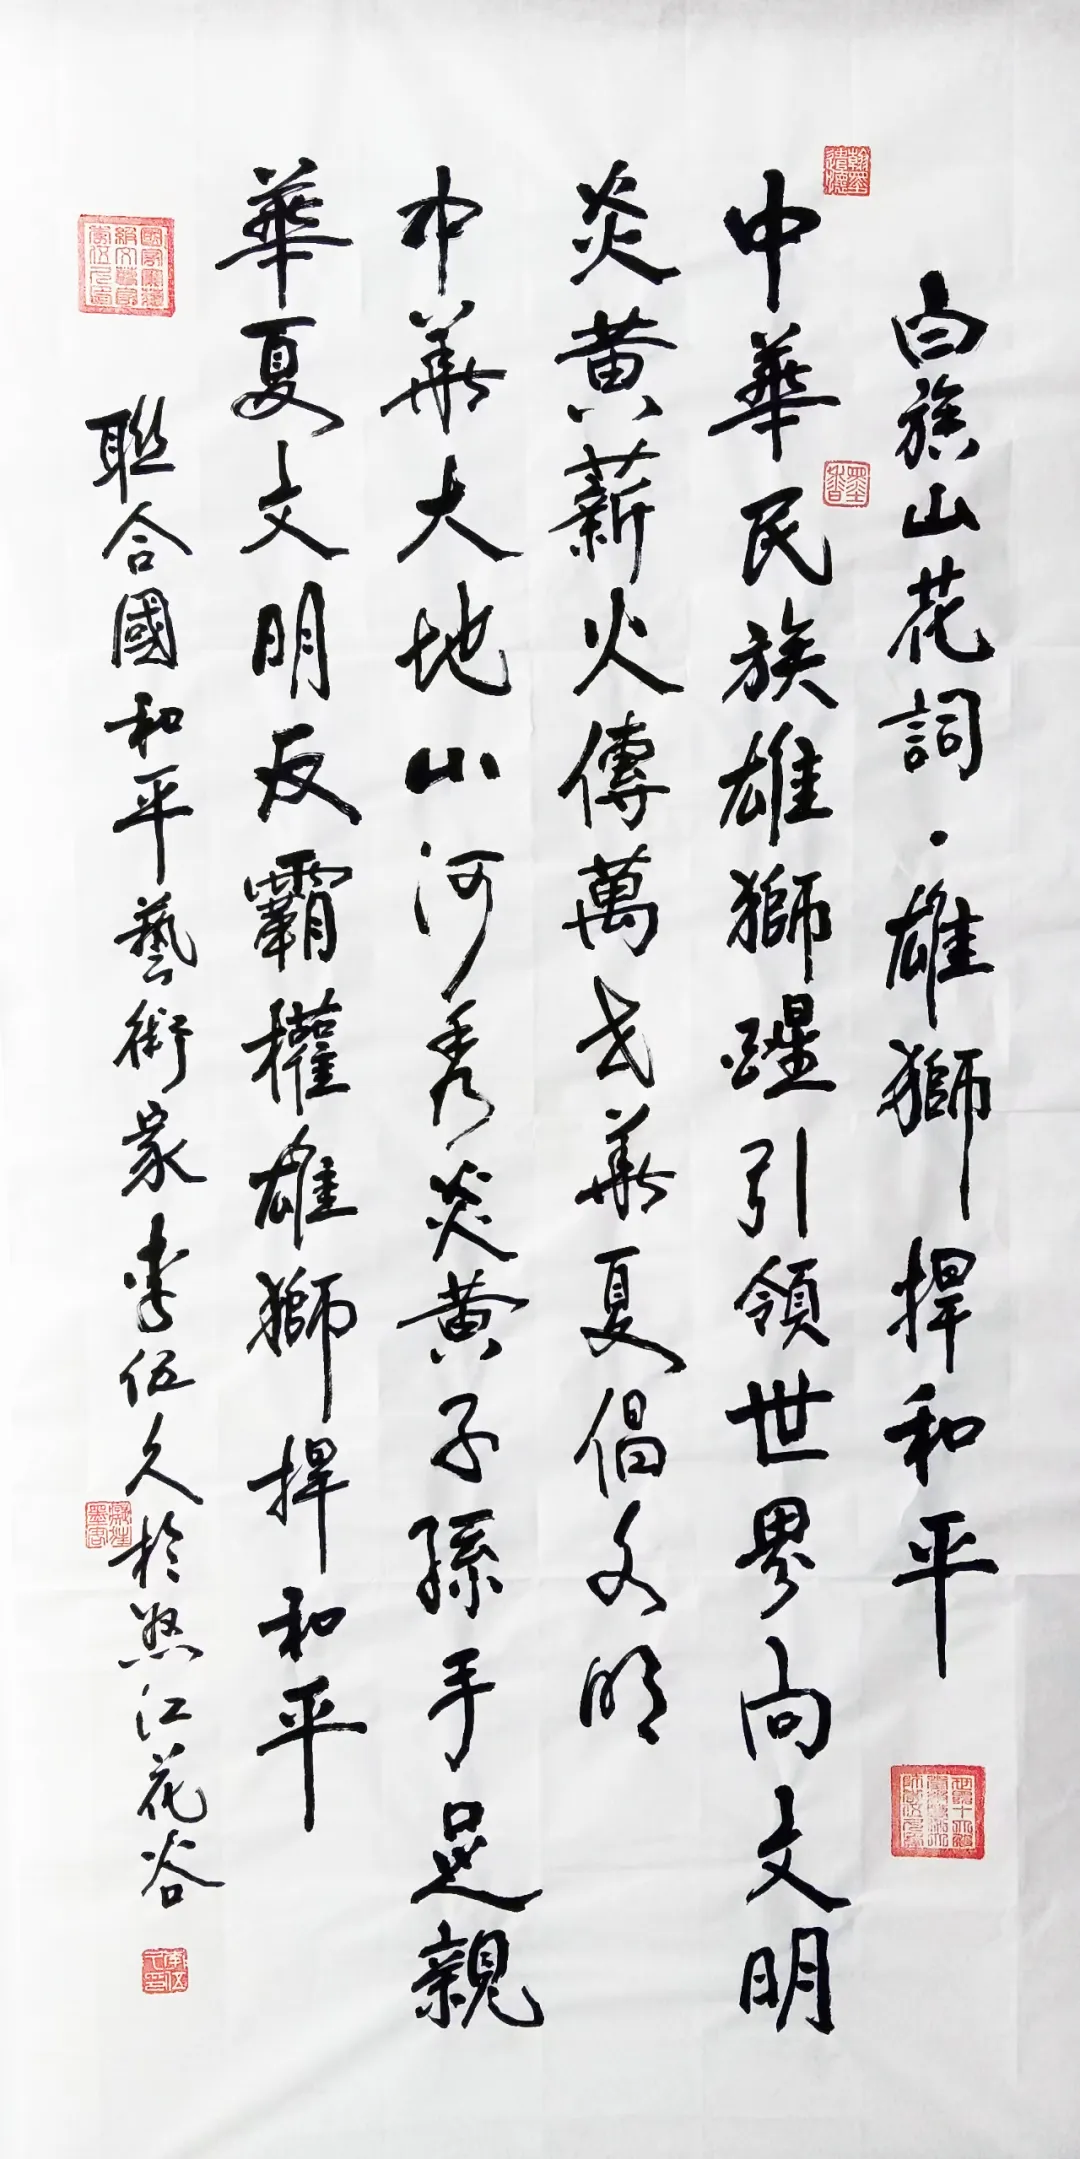 白族山花詞·雄獅捍和平
翰墨遣懷
墨香
中華民族雄獅醒引領世界尚文明
炎黄薪火傳萬世華夏倡文明
中華大地山河秀炎黄子孫手足親
華夏文明反霸權雄獅捍和平
聯合國和平藝術家李伍久於怒江花谷